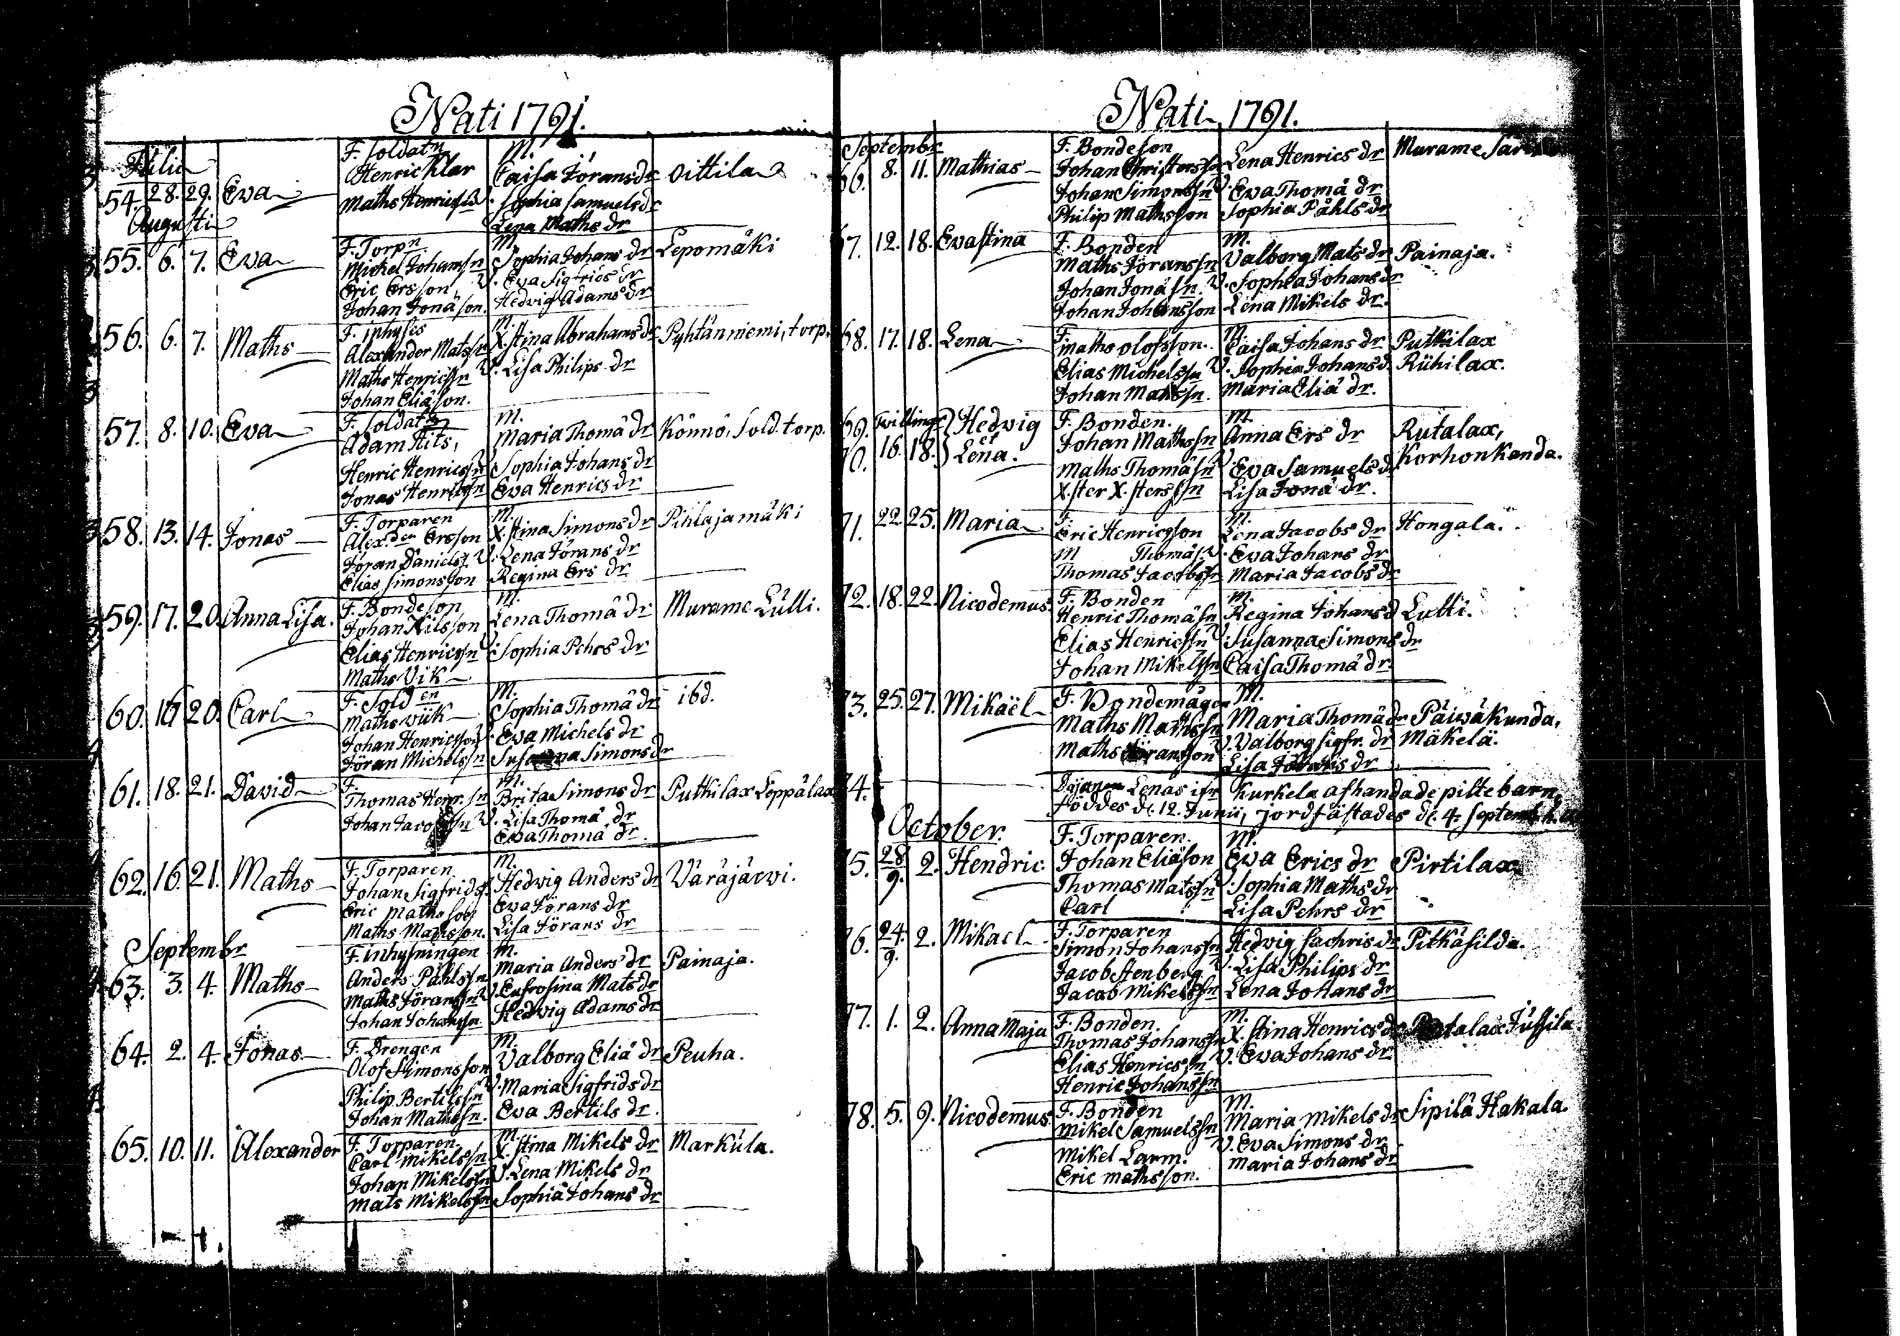 Nati 1791.
F. Soldatn M.
Henric Klar Caisa Jöransdr Oittila
54. 28. 29. Eva
Maths Henricss V. Sophia Samuelsdr
Augusti
Lena Maths dr
F. Torpn M.
55. 6. 7. Eva Michel Johanssn Sophia Johans dr Lepomäki
Eric Ersson V. Eva Sigfrids dr
Johan Jonäson. Hedvig Adams dr
F. inhyses M.
56. 6. 7. Maths Alexander Matssn X.stina Abrahams dr Pyhtänniemi, torp.
Maths Henricssn V. Lisa Philips dr
Johan Eliäson.
F. Soldatn M.
57. 8. 10. Eva Adam Hits, Maria Thomä dr Könnö, Sold. torp.
Henric Henricssn V. Sophia Johans dr
Jonas Henricssn Eva Henrics dr
F. Torparen M.
58. 13. 14. Jonas Alex.der Ersson X.stina Simons dr Pihlajamäki
Jöran Daniels. V. Lena Jörans dr
Elias Simonsson Regina Ers dr
F. Bondeson M.
59. 17. 20. Anna Lisa. Johan Nilsson Lena Thomä dr Murame Lulli.
Elias Henricssn V. Sophia Pehrs dr
Maths Vik
F. Solden M.
60. 16 20. Carl Maths wiik Sophia Thomä dr ibd.
Johan Henricsson V. Eva Michels dr
Jöran Michelssn Susanna Simons dr
F. M.
61. 18. 21. David Thomas Henr.sn Brita Simons dr Puttilax Loppälax
Johan Jacobssn V. Lisa Thomä dr
Eva Thomä dr.
F. Torparen M.
62. 16. 21. Maths Johan Sigfrids. Hedvig Anders dr Väräjärvi.
Eric Mathsson Eva Jörans dr
Maths Mathsson. Lisa Jörans dr
Septembr
F. inhysningen M.
63. 3. 4. Maths Anders Påhlssn Maria Anders dr Painaja.
Maths Jöranssn V. Eufrosina Mats dr
Johan Johanssn. Hedvig Adams dr
F. Drengen M.
64. 2. 4. Jonas Olof Simonsson Valborg Eliä dr Peuha.
Philip Bertilssn V. Maria Sigfrids dr
Johan Mathssn. Eva Bertils dr.
F. Torparen M.
65. 10. 11. Alexander Carl Mikelssn X.stina Mikels dr Markula.
Johan Mikelssn V. Lena Mikels dr
Mats Mikelssn Sophia Johans dr
Nati 1791.
Septembr
F. Bondeson
66. 8. 11. Mathias Johan Christerssn Lena Henrics dr Murame
Johan Simonssn V. Eva Thomä dr
Philip Mathsson Sophia Påhls dr
F. Bonden M.
67. 12. 18. Evastina Maths Jöranssn Valborg Mats dr Painaja.
Johan Jonäsn. V. Sophia Johans dr
Johan Johansson Lena Mikels dr.
F. M.
68. 17. 18. Lena Maths Olofsson. Caisa Johans dr Putkilax
Elias Michelssn V. Sophia Johansd. Rühilax.
Johan Matssn. Maria Eliä dr.
69. Twilling Hedvig F. Bonden. M.
70. 16. 18. et Lena. Johan Mathssn Anna Ers dr Rutalax,
Maths Thomäsn V. Eva Samuels dr Korhonkanda.
X.ster X.sterssn Lisa Jonä dr.
F. M.
71. 22. 25. Maria Eric Henricsson Lena Jacobs dr Hongala.
M Thomäs V. Eva Johans dr
Thomas Jacobssn Maria Jacobs dr
F. Bonden M.
72. 18. 22. Nicodemus. Henric Thomäsn Regina Johansd Lulli.
Elias Henricssn V. Susanna Simons dr
Johan Mikelssn Caisa Thomä dr
F. Bondemågen M.
73. 25. 27. Mikaël Maths Mathssn Maria Thomä dr Päiväkunda,
Maths Jöransson V. Valborg Sigfr. dr Mäkelä.
Lisa Jörans dr
74. Lenas ifr Kurkela afhandade piltebarn,
föddes d. 12. Junii, jordfästades d. 4. Septemb.
October.
F. Torparen. M.
75. 28/9. 2. Hendric. Johan Eliäson Eva Erics dr Pirtilax.
Thomas Matssn V. Sophia Maths dr
Carl Lisa Pehrs dr
F. Torparen
76. 24/9. 2. Mikael Simon Johanssn Hedvig Sachris dr Pitkäsilda.
Jacob Stenberg V. Lisa Philips dr
Jacob Mikelssn Lena Johans dr
F. Bonden. M.
77. 1. 2. Anna Maja Thomas Johanssn X.stina Henrics dr Rutalax Jussila
Elias Henricssn V. Eva Johans dr
Henric Johanssn
F. Bonden M.
78. 5. 9. Nicodemus. Mikel Samuelssn Maria Mikels dr Sipilä Hakala.
Mikel Larm. V. Eva Simons dr
Eric Mathsson. Maria Johans dr